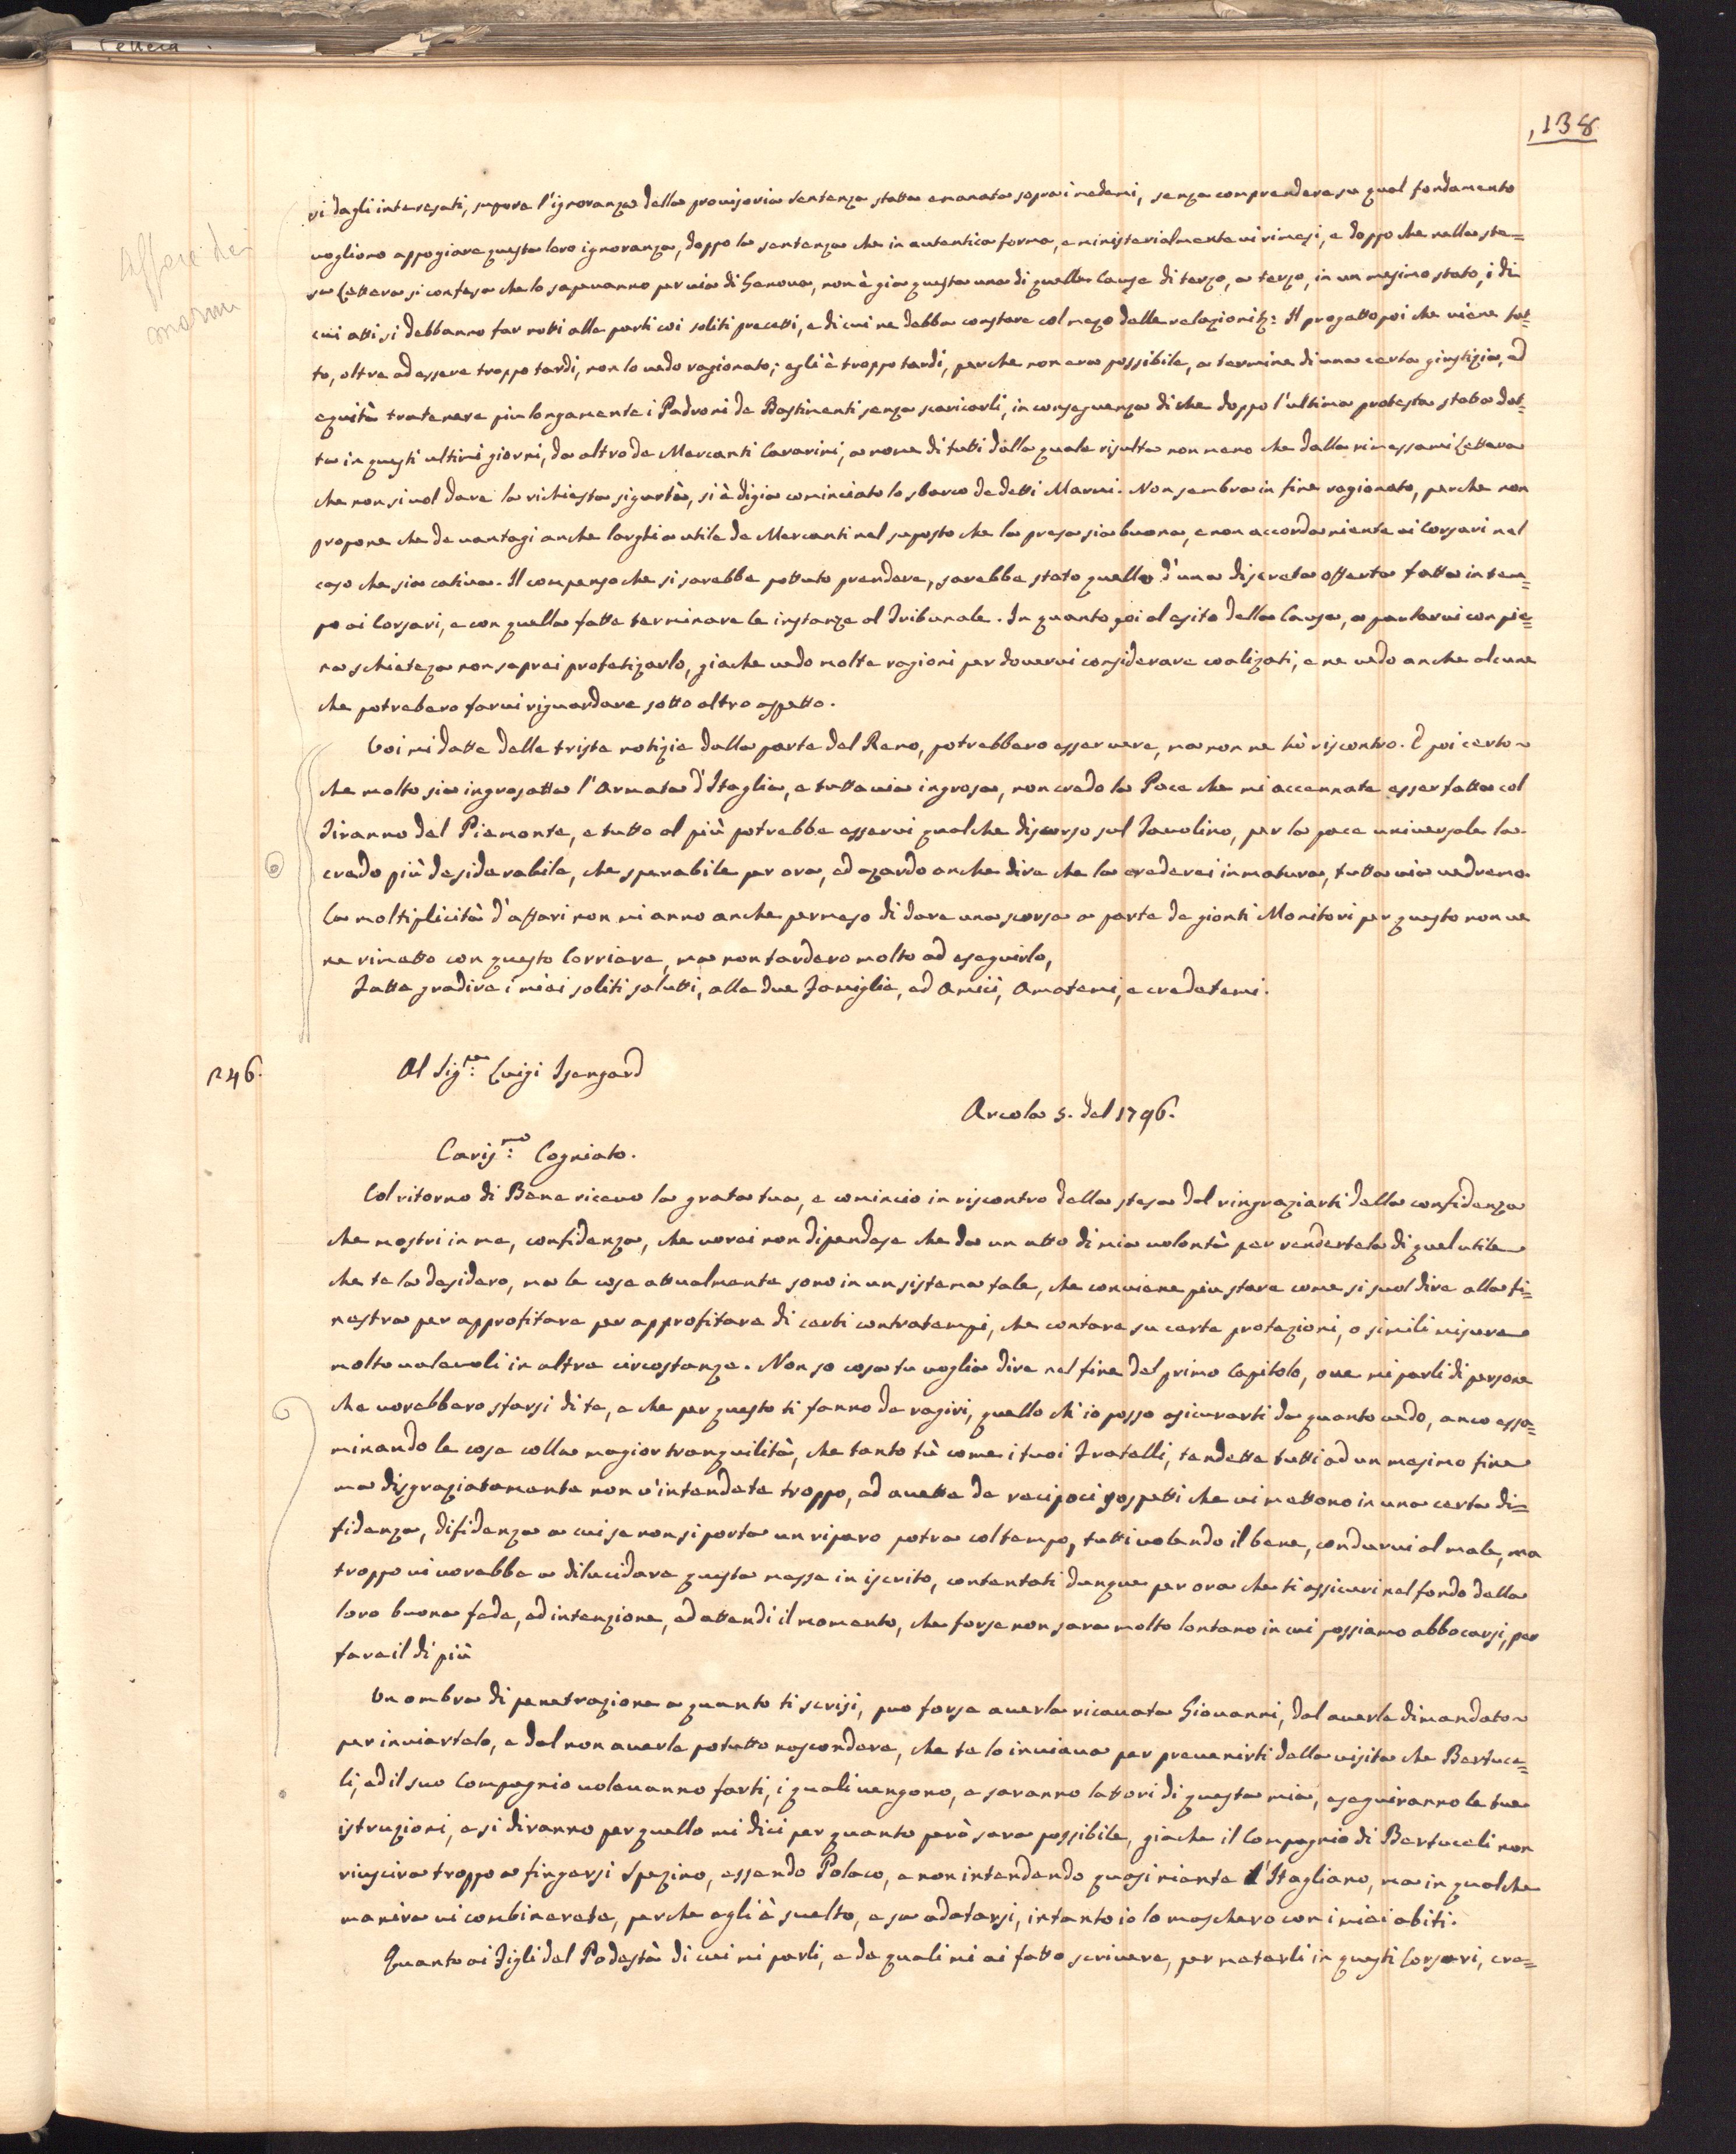 Lettera
138
Affare dei
marmi
vi dagli interesati, supore l'ignoranza della provisoria sentenza statta emanata sopra i medemi, senza comprendere su qual fondamento
vogliono appogiare questa loro ignoranza, doppo la sentenza che in autentica forma, e ministerialmente vi rimesi, e doppo che nella ste=
sa Lettera si confesa che lo sapevanno per via di Genova, non è gia questa una di quelle Cause di terzo, a terzo, in un mesimo stato, i di
cui atti si debbanno far notti alle parti coi soliti precetti, e di cui ne debba constare col mezo delle relazioni &: Il progetto poi che viene fat=
to, oltre ad essere troppo tardi, non lo vedo ragionato; egli è troppo tardi, perche non era possibile, a termine di una certa giustizia, ed
equità tratenere piu longamente i Padroni de Bastimenti senza scaricarli, in conseguenza di che doppo l'ultima protesta stata dat=
ta in questi ultimi giorni, da altro de Mercanti Cararini, a nome di tutti dalla quale risulta non meno che dalla rimessami Lettera
che non si vol dare la richiesta sigurtà, si è digia cominciato lo sbarco de detti Marmi. Non sembra in fine ragionato, perche non
propone che de vantagi anche larghi a utile de Mercanti nel suposto che la presa sia buona, e non accorda niente ai Corsari nel
caso che sia cativa. Il compenso che si sarebbe pottuto prendere, sarebbe stato quello d'una discreta offerta fatta in tem=
po ai Corsari, e con quella fatte terminare le instanze al Tribunale. In quanto poi al esito della Causa, a parlarvi con pie=
na schieteza non saprei profetizarlo, giache vedo molte ragioni per dovervi considerare coalizati, e ne vedo anche alcune
che potrebero farvi riguardare sotto altro aspetto.
Voi mi datte delle triste notizie dalla parte del Reno, potrebbero esser vere, ma non ne hò riscontro. È poi certo
che molto sia ingrosatta l'Armata d'Itaglia, e tutta via ingrosa, non credo la Pace che mi accennate esser fatta col
Tiranno del Piemonte, e tutto al più potrebbe esservi qualche discorso sul Tavolino, per la pace universale la
credo più desiderabile, che sperabile per ora, ed azardo anche dire che la crederei inmatura, tutta via vedremo.
La moltiplicità d'affari non mi anno anche permeso di dare una scorsa a parte de gionti Monitori per questo non ve
ne rimetto con questo Corriere, ma non tardero molto ad eseguirlo,
Fatte gradire i miei soliti saluti, alle due Famiglie, ed Amici, Amatemi, e credetemi.
n 46.
Al Sig.re Luigi Isengard
Arcola 5. del 1796.
Caris.mo Cogniato.
Col ritorno di Bene ricevo la grata tua, e comincio in riscontro della stesa dal ringraziarti della confidenza
che mostri in me, confidenza, che vorei non dipendese che da un atto di mia volontà per rendertela di quel utile
che te la desidero, ma le cose attualmente sono in un sistema tale, che conviene piu stare come si suol dire alla fi=
nestra per approfitare per approfitare di certi contratempi, che contare su certe protezioni, o simili misure
molto valevoli in altre circostanze. Non so cosa tu voglia dire nel fine del primo Capitolo, ove mi parli di persone
che vorebbero sfarsi di te, e che per questo ti fanno de ragiri, quello ch'io posso asicurarti da quanto vedo, anco esa=
minando le cose colla magior tranquilità, che tanto tù come i tuoi Fratelli, tendette tutti ad un mesimo fine
ma disgraziatamente non v'intendete troppo, ed avette de recipoci sospetti che vi mettono in una certa di=
fidenza, difidenza a cui se non si porta un riparo potra col tempo, tutti volendo il bene, condurvi al male, ma
troppo vi vorebbe a dilucidare questa messe in iscrito, contentati dunque per ora che ti assicuri nel fondo della
loro buona fede, ed intenzione, ed attendi il momento, che forse non sara molto lontano in cui possiamo abbocarsi, per
fare il di più
Un ombra di penetrazione a quanto ti scrisi, puo forse averla ricavata Giovanni, dal averle dimandato
per inviartelo, e dal non averle potutto nascondere, che te lo inviava per prevenirti della visita che Bertuce=
li, ed il suo Compagnio volevanno farti, i quali vengono, e saranno lattori di questa mia, eseguiranno le tue
istruzioni, e si diranno per quello mi dici per quanto però sara possibile, giache il Compagnio di Bertuceli non
riuscira troppo a fingersi Spezino, essendo Polaco, e non intendendo quasi niente l'Itagliano, ma in qualche
maniera vi combinerete, perche egli è svelto, e sa adatarsi, intanto io lo maschero con i miei abiti.
Quanto ai Figli del Podestà di cui mi parli, e de quali mi ai fatto scrivere, per metterli in questi Corsari, cre=